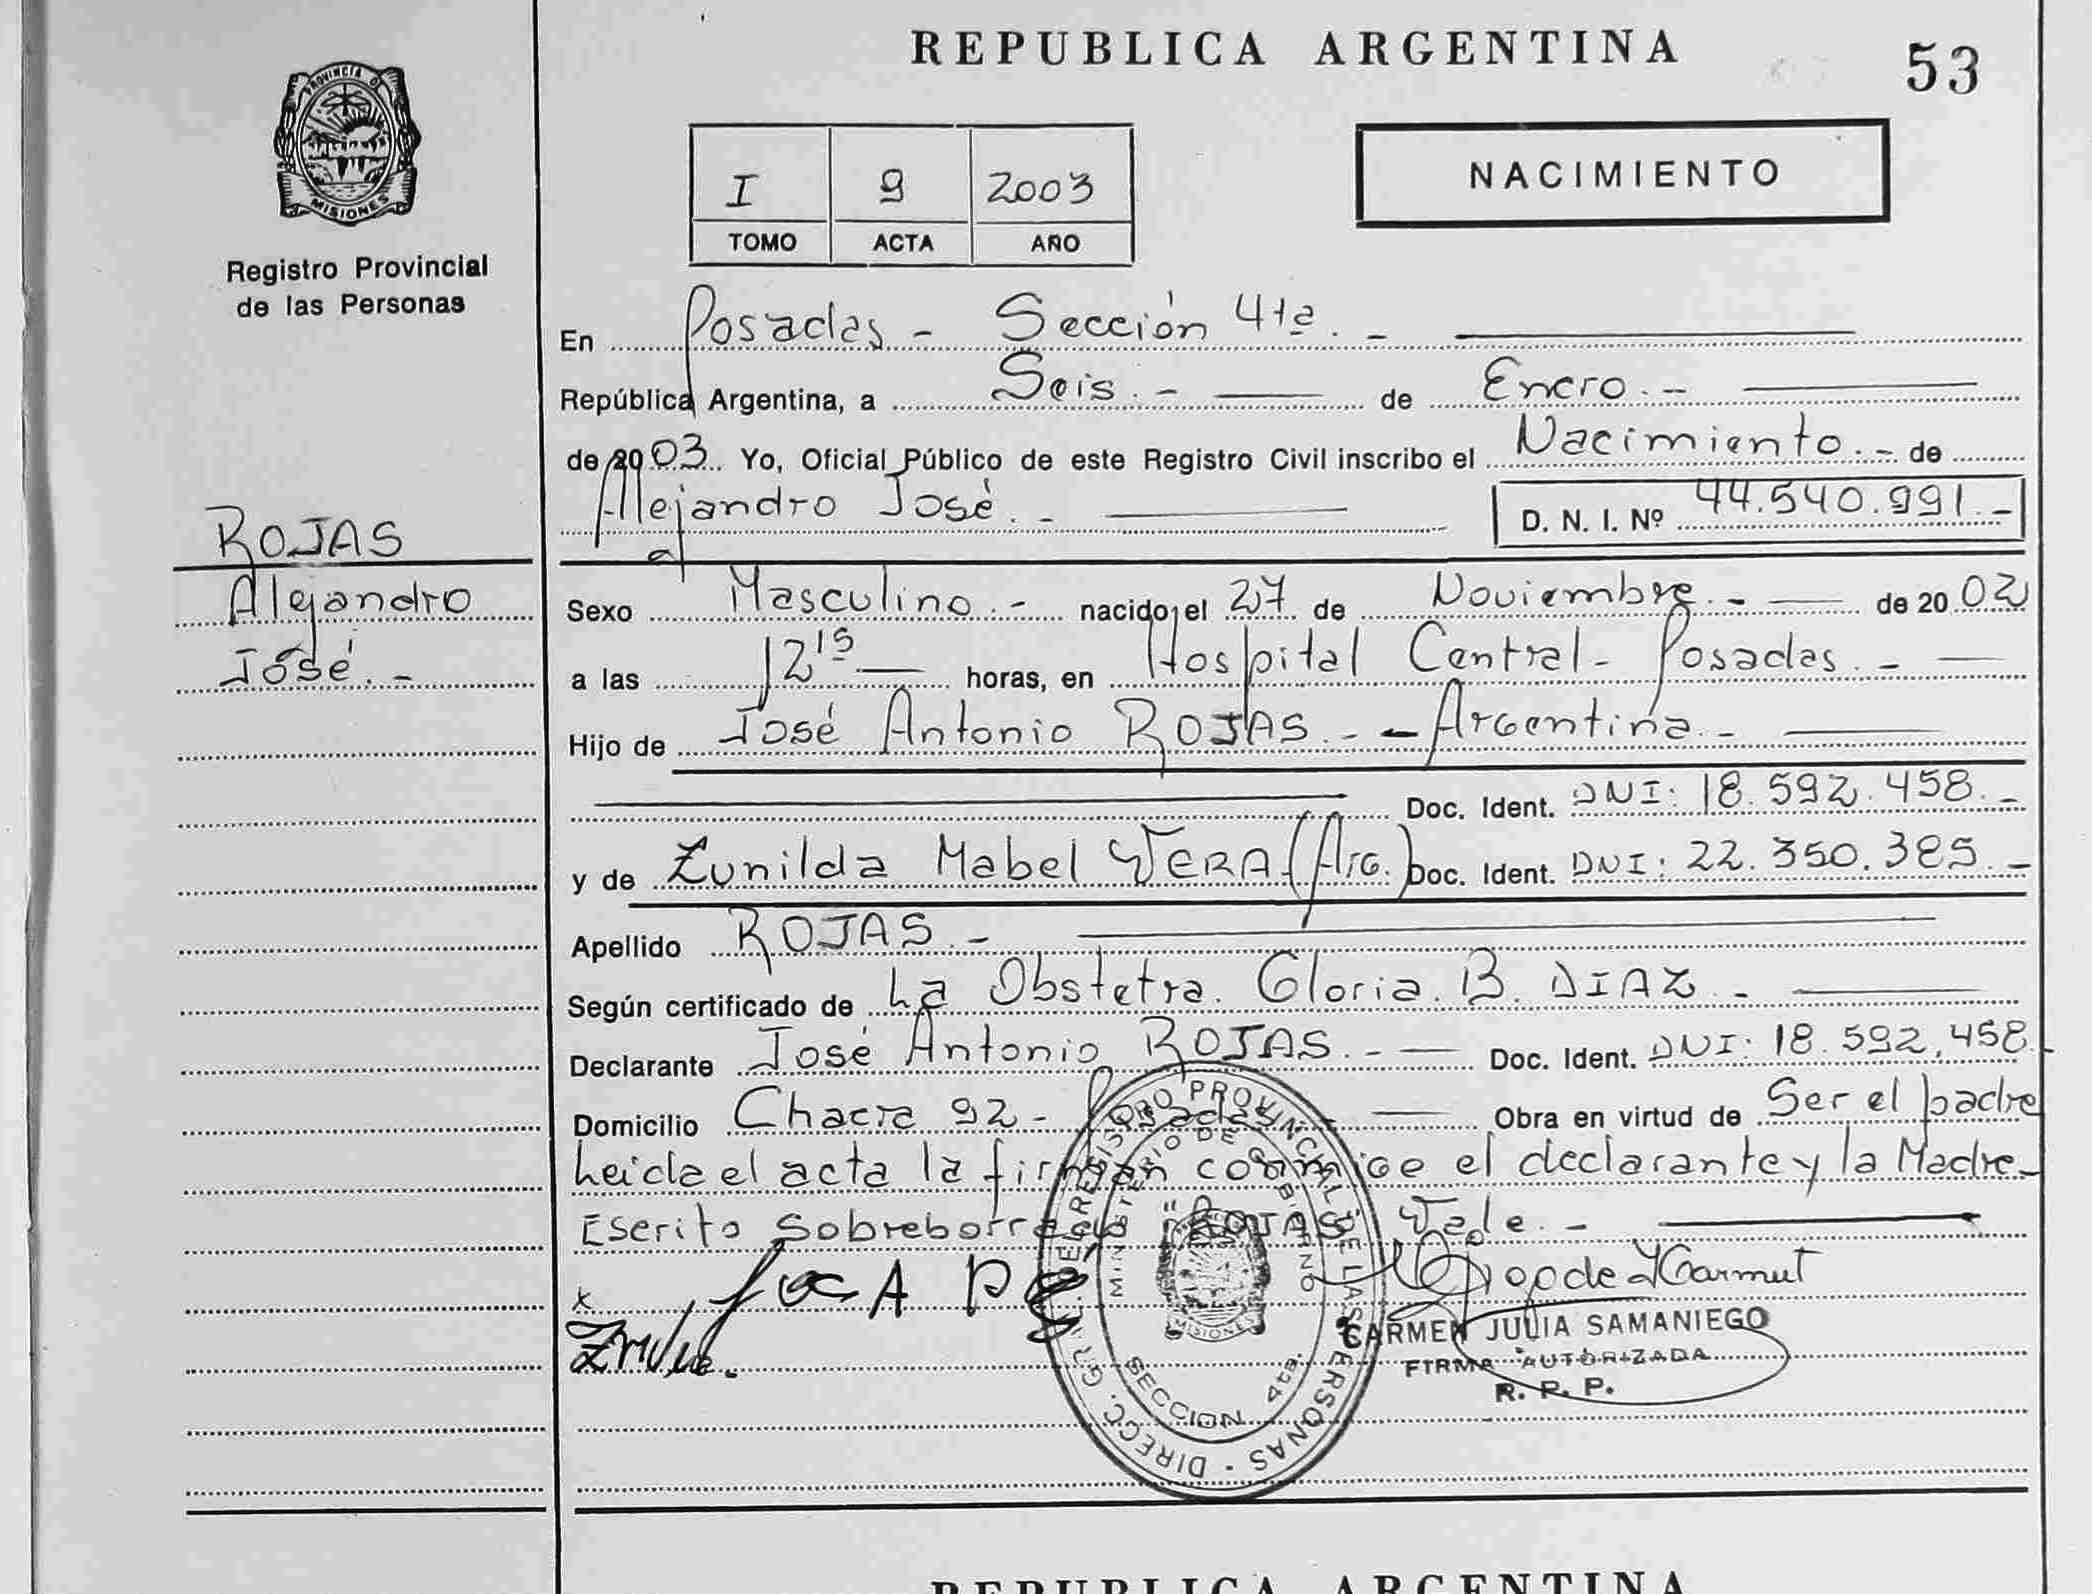 REPUBLICA ARGENTINA
53
PROVINCIA D
MISIONES
Registro Provincial
de las Personas
NACIMIENTO
I 9 2003
TOMO ACTA AÑO
En Posadas - Sección 4ta. -
República Argentina, a Seis. - de Enero. -
de 2003. Yo, Oficial Público de este Registro Civil inscribo el Nacimiento. - de
Alejandro José. - D. N. I. Nº 44.540.991. -
ROJAS
Alejandro
José. -
Sexo Masculino. - nacido el 27 de Noviembre. - de 2002
a las 12 15 horas, en Hospital Central - Posadas. -
Hijo de José Antonio ROJAS. - - Argentina. -
Doc. Ident. DNI: 18.592.458. -
y de Zunilda Mabel VERA (Arg.) Doc. Ident. DNI: 22.350.385. -
Apellido ROJAS. -
Según certificado de La Obstetra. Gloria. B. DIAZ. -
Declarante José Antonio ROJAS. - Doc. Ident. DNI: 18.592.458. -
Domicilio Chacra 92 - Posadas - Obra en virtud de Ser el padre
Leida el acta la firman conmigo el declarante y la Madre -
Escrito sobreborrado "ROJAS" Vale. -
x
CARMEN JULIA SAMANIEGO
FIRMA AUTORIZADA
R. P. P.
DIRECC. GRAL. DEL REGISTRO PROVINCIAL DE LAS PERSONAS -
MINISTERIO DE GOBIERNO
MISIONES
SECCION 4ta.
REPUBLICA ARGENTINA